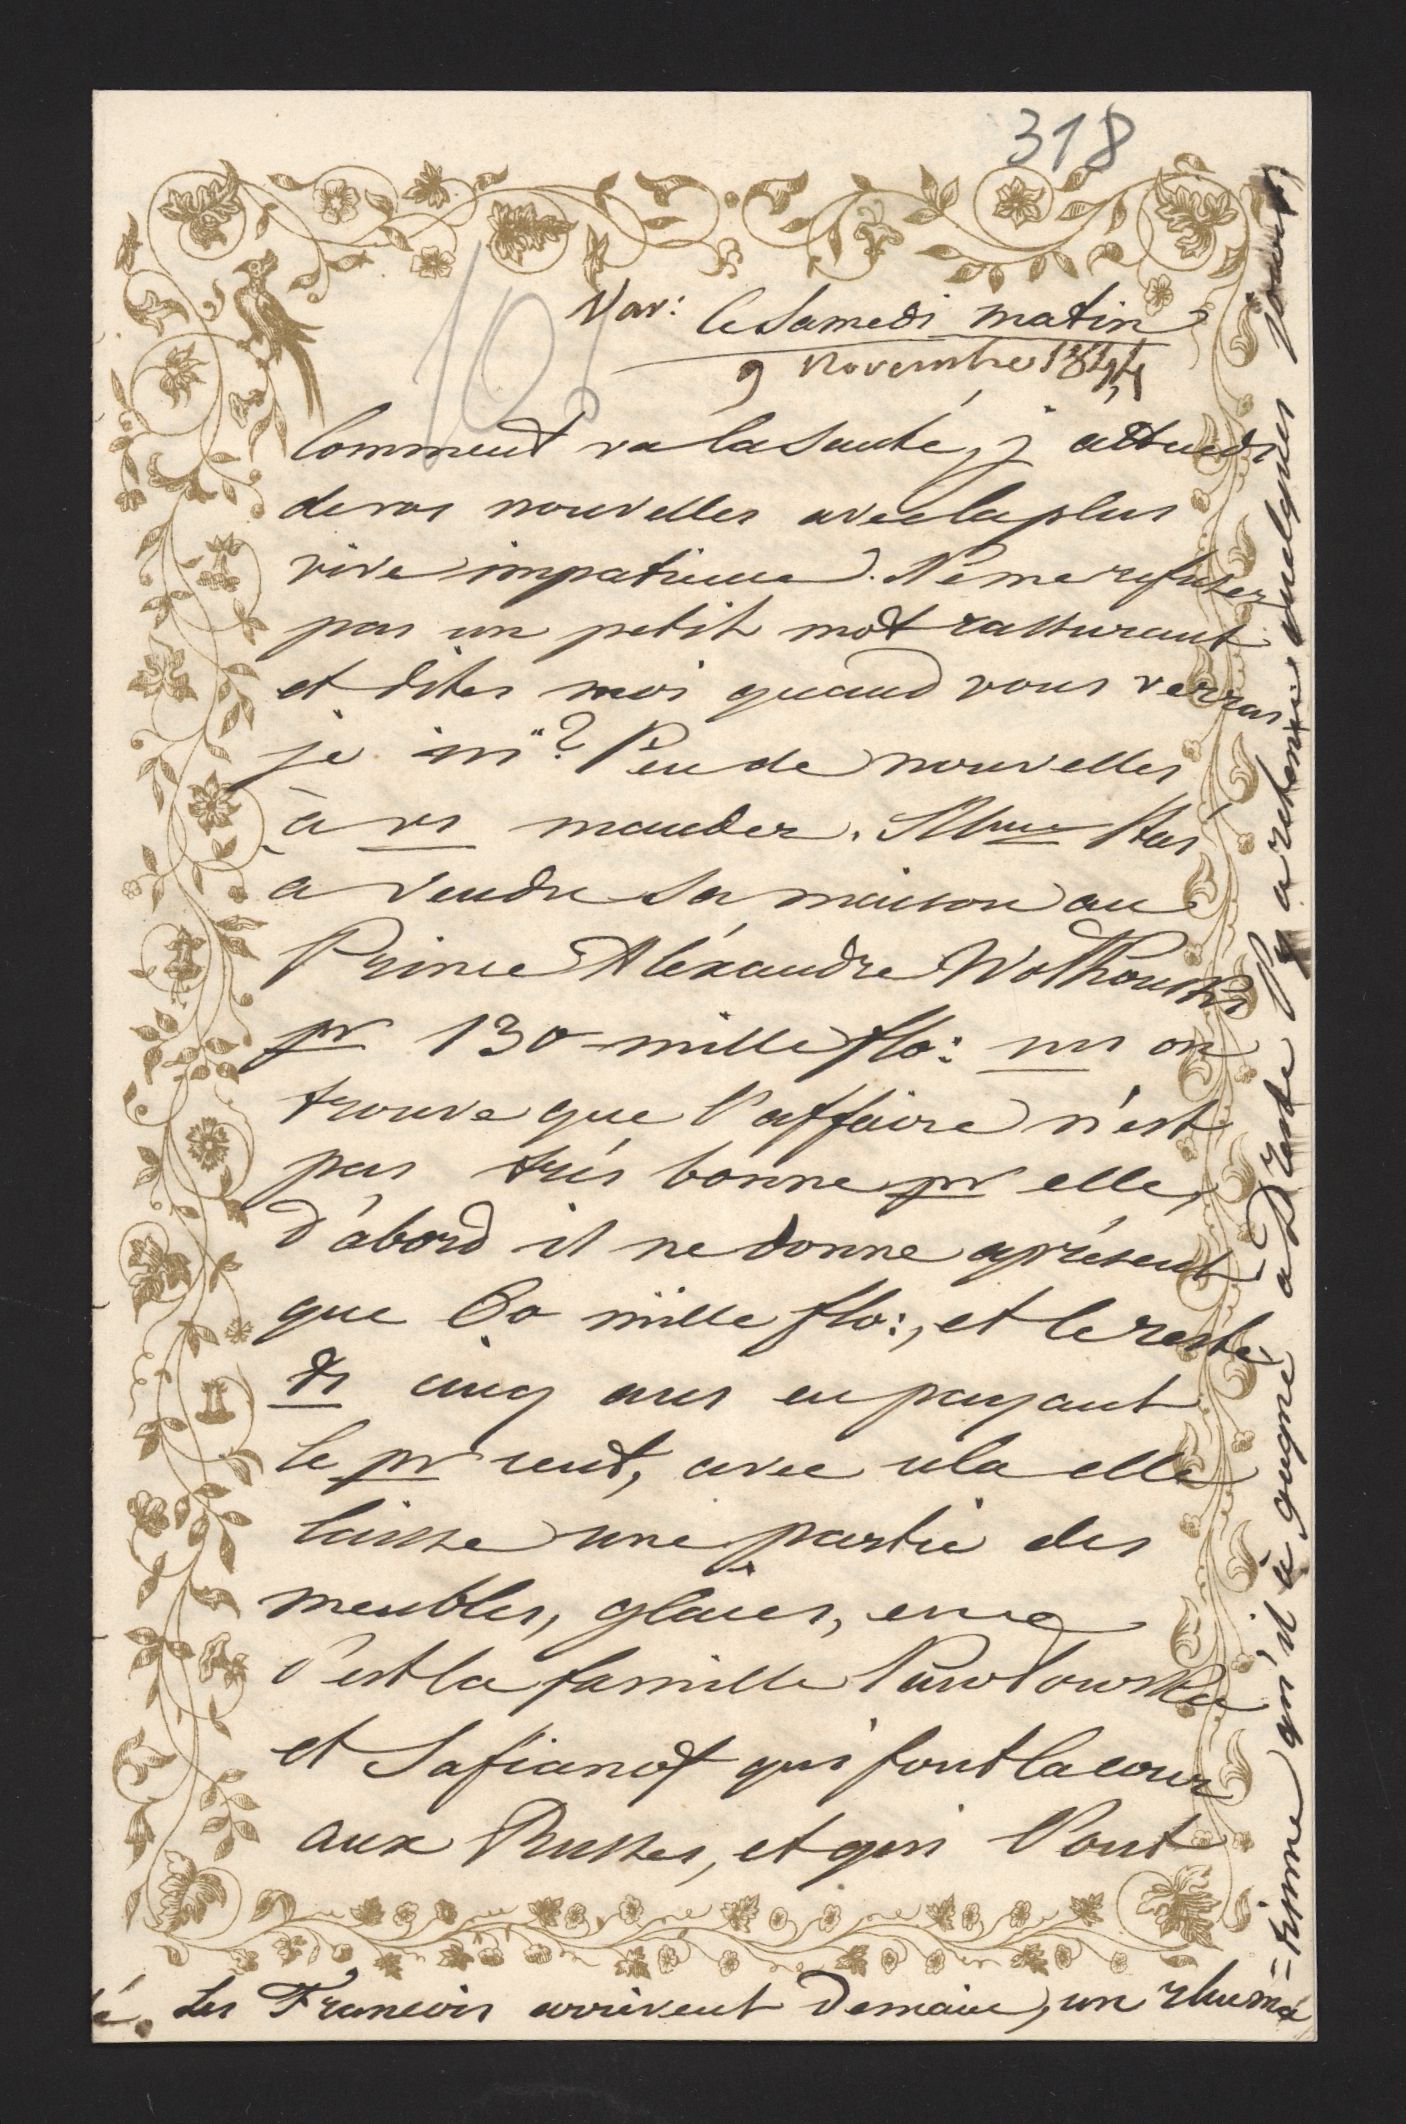 318
101
Var: le Samedi matin
9 Novembre 1844
Comment va la Santé, j'attends
de vos nouvelles avec la plus
vive impatience. Ne me refusez
pas un petit mot rassurant
et dites moi quand vous verrai
je ici? Peu de nouvelles
à vs mander. Mme
a vendu sa maison au
Prince Aléxandre Wolkonski
pr 130 mille flo: on
trouve que l'affaire n'est
pas très bonne pr elle,
d'abord il ne donne àprésent
que 60 mille flo:, et le reste
ds cinq ans en payant
le pr cent, avec cela elle
laisse une partie des
meubles, glaces,
c'est la famille Pawlowska
et Safianof qui font la cour
aux Russes, et qui l'ont
é. Les François arrivent demain, un rhuma=
=tisme qu'il à gagné à Dresde l'y a retenu quelques jours,